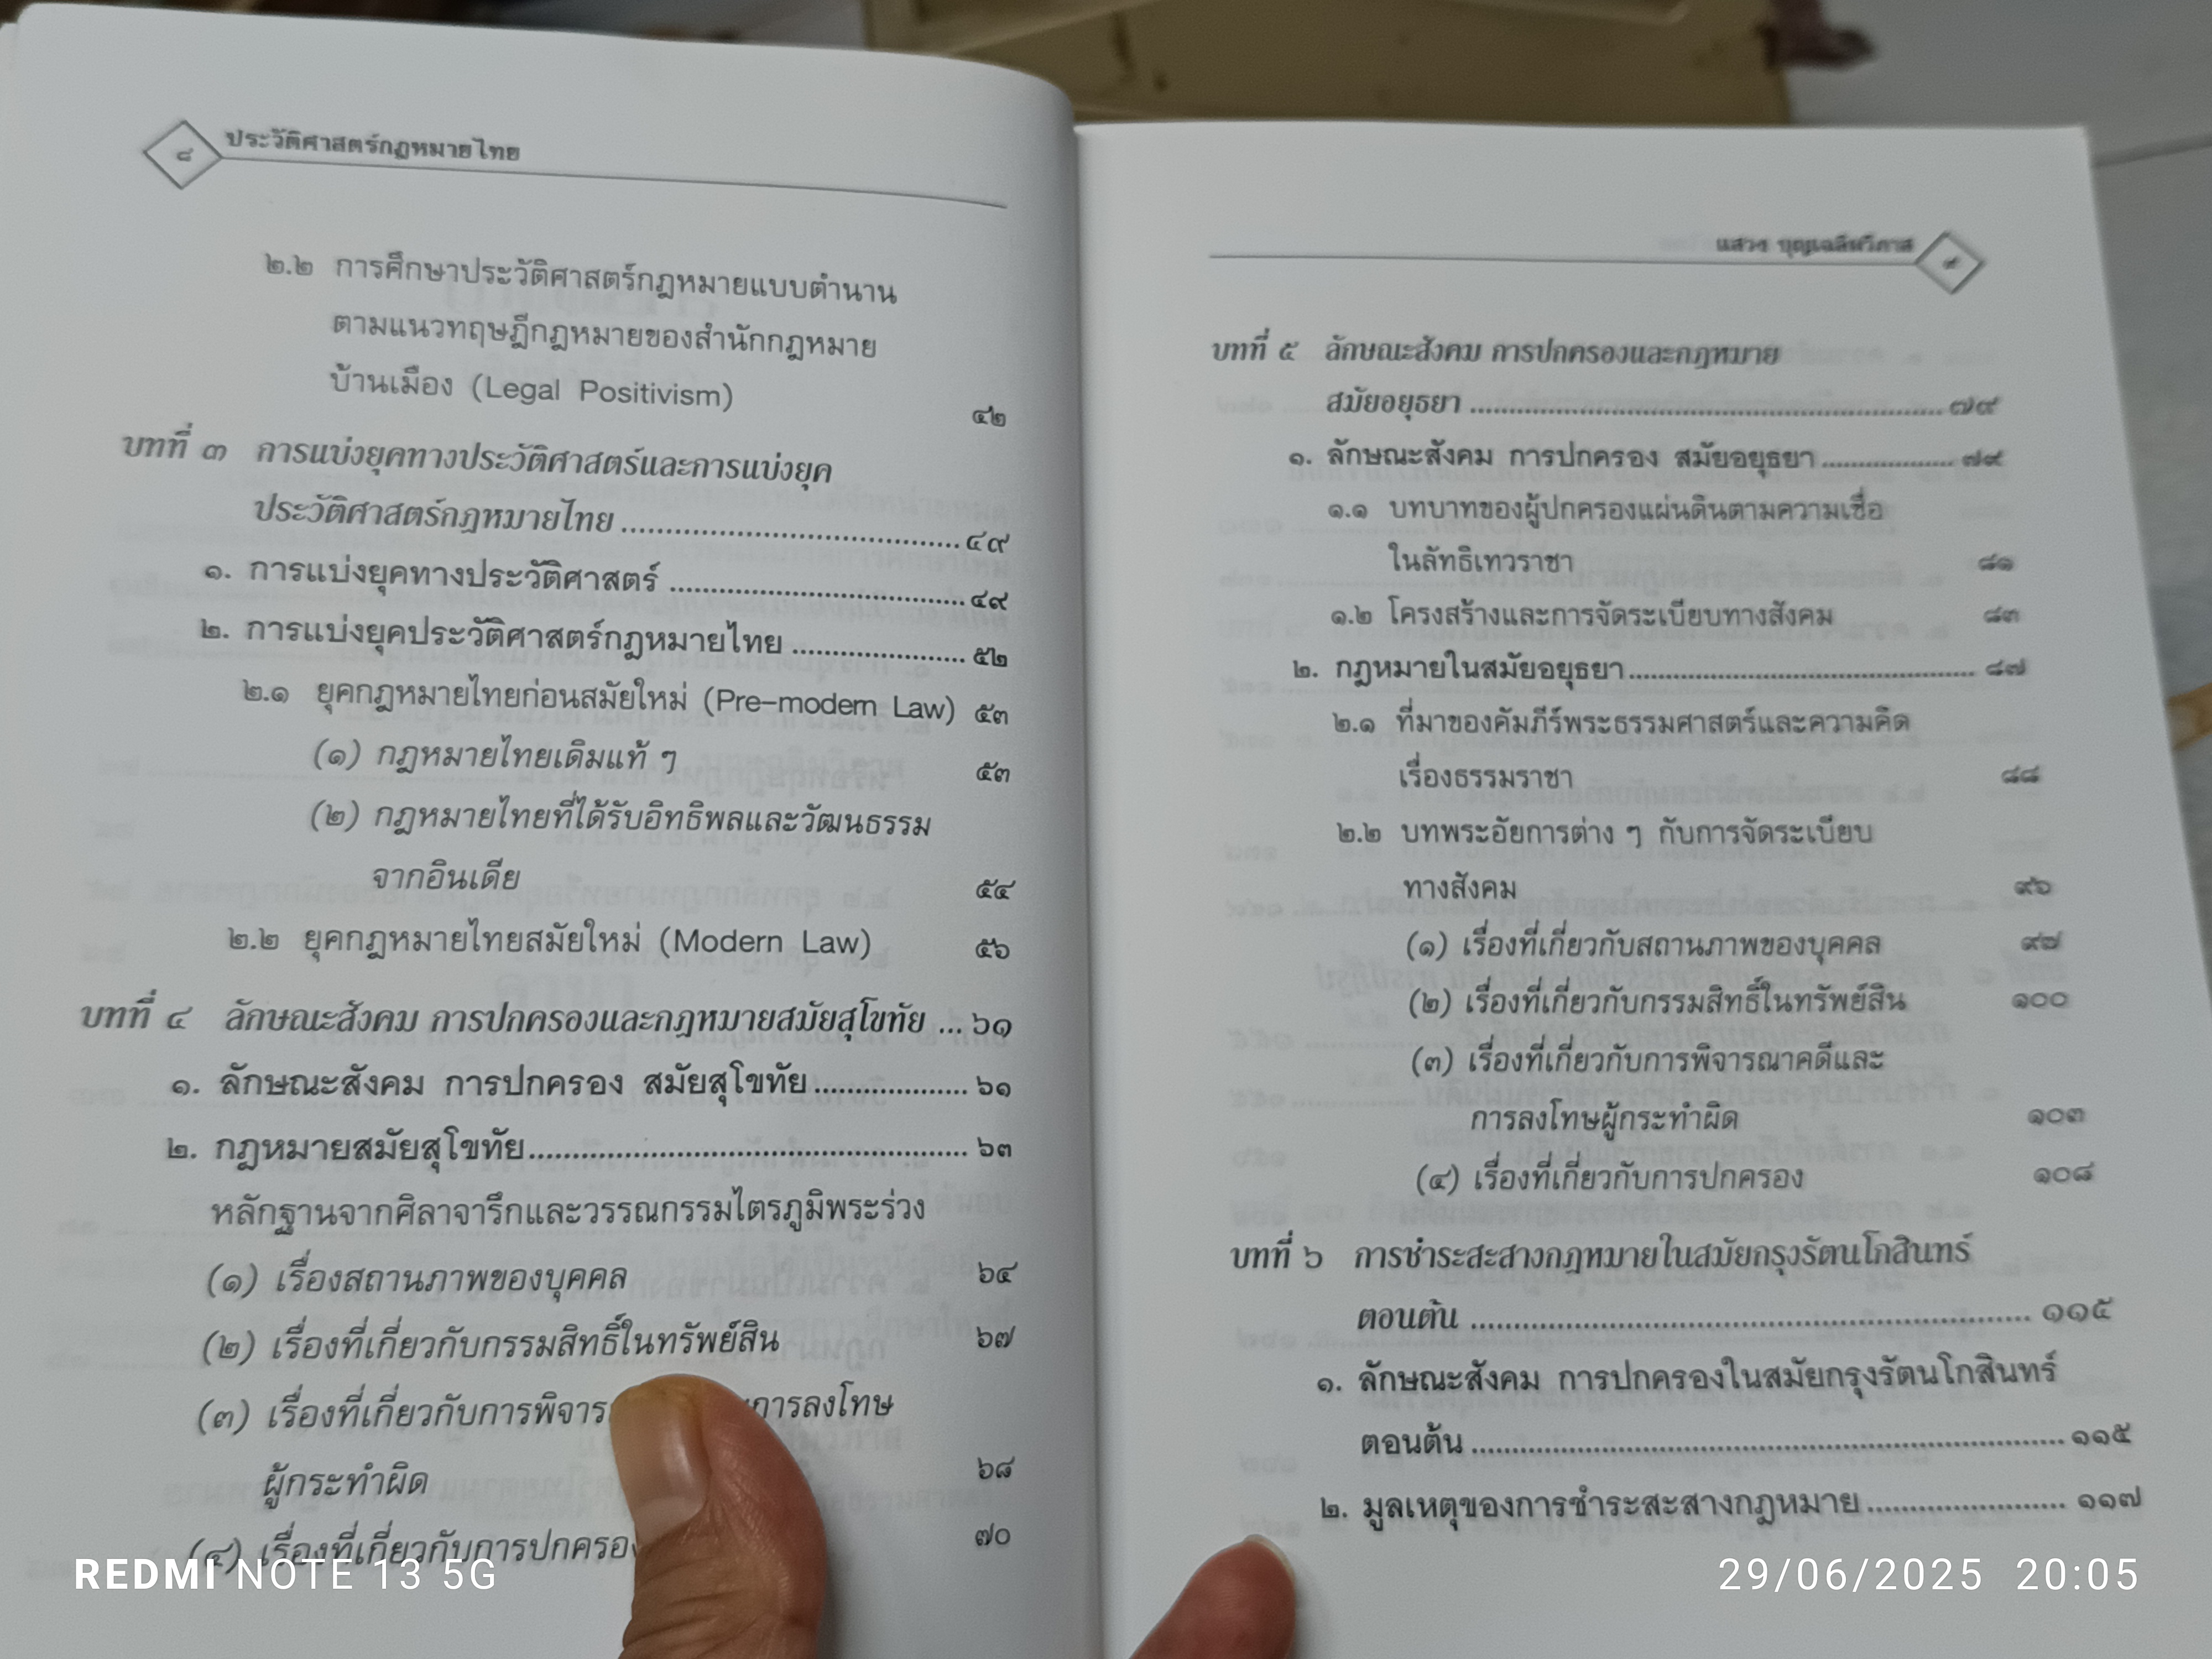 ๘ ประวัติศาสตร์กฎหมายไทย
๒.๒ การศึกษาประวัติศาสตร์กฎหมายแบบตำนาน
ตามแนวทฤษฎีกฎหมายของสำนักกฎหมาย
บ้านเมือง (Legal Positivism) ๔๒
บทที่ ๓ การแบ่งยุคทางประวัติศาสตร์และการแบ่งยุค
ประวัติศาสตร์กฎหมายไทย ........................................ ๔๙
๑. การแบ่งยุคทางประวัติศาสตร์ ................................... ๔๙
๒. การแบ่งยุคประวัติศาสตร์กฎหมายไทย ..................... ๕๒
๒.๑ ยุคกฎหมายไทยก่อนสมัยใหม่ (Pre-modern Law) ๕๓
(๑) กฎหมายไทยเดิมแท้ ๆ ๕๓
(๒) กฎหมายไทยที่ได้รับอิทธิพลและวัฒนธรรม
จากอินเดีย ๕๔
๒.๒ ยุคกฎหมายไทยสมัยใหม่ (Modern Law) ๕๖
บทที่ ๔ ลักษณะสังคม การปกครองและกฎหมายสมัยสุโขทัย ... ๖๑
๑. ลักษณะสังคม การปกครอง สมัยสุโขทัย .................. ๖๑
๒. กฎหมายสมัยสุโขทัย ................................................... ๖๓
หลักฐานจากศิลาจารึกและวรรณกรรมไตรภูมิพระร่วง
(๑) เรื่องสถานภาพของบุคคล ๖๔
(๒) เรื่องที่เกี่ยวกับกรรมสิทธิ์ในทรัพย์สิน ๖๗
(๓) เรื่องที่เกี่ยวกับการพิจาร การลงโทษ
ผู้กระทำผิด ๖๘
(๔) เรื่องที่เกี่ยวกับการปกครอง ๗๐
แสวง บุญเฉลิมวิภาส ๙
บทที่ ๕ ลักษณะสังคม การปกครองและกฎหมาย
สมัยอยุธยา ............................................................ ๗๙
๑. ลักษณะสังคม การปกครอง สมัยอยุธยา .................. ๗๙
๑.๑ บทบาทของผู้ปกครองแผ่นดินตามความเชื่อ
ในลัทธิเทวราชา ๘๑
๑.๒ โครงสร้างและการจัดระเบียบทางสังคม ๘๓
๒. กฎหมายในสมัยอยุธยา .............................................. ๘๗
๒.๑ ที่มาของคัมภีร์พระธรรมศาสตร์และความคิด
เรื่องธรรมราชา ๘๘
๒.๒ บทพระอัยการต่าง ๆ กับการจัดระเบียบ
ทางสังคม ๙๖
(๑) เรื่องที่เกี่ยวกับสถานภาพของบุคคล ๙๗
(๒) เรื่องที่เกี่ยวกับกรรมสิทธิ์ในทรัพย์สิน ๑๐๐
(๓) เรื่องที่เกี่ยวกับการพิจารณาคดีและ
การลงโทษผู้กระทำผิด ๑๐๓
(๔) เรื่องที่เกี่ยวกับการปกครอง ๑๐๘
บทที่ ๖ การชำระสะสางกฎหมายในสมัยกรุงรัตนโกสินทร์
ตอนต้น .................................................................. ๑๑๕
๑. ลักษณะสังคม การปกครองในสมัยกรุงรัตนโกสินทร์
ตอนต้น ..................................................................... ๑๑๕
๒. มูลเหตุของการชำระสะสางกฎหมาย ........................ ๑๑๗
REDMI NOTE 13 5G
29/06/2025 20:05